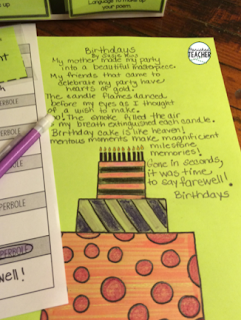 Language to make up
your poem.
PERBOLE
PERBOLE
YPERBOLE
HYPERBOLE
well!
TEACHER
Birthdays
My mother made my party
into a beautiful masterpiece.
My friends that came to
celebrate my party have
hearts of gold.
The candle flames danced
before my eyes as I thought
of a wish to make.
The smoke filled the air
my breath extinguished each candle.
Birthday cake is like heaven!
mentous moments make magnificent
milestone
memories!
Gone in seconds,
it was time
to say farewell!
Birthdays